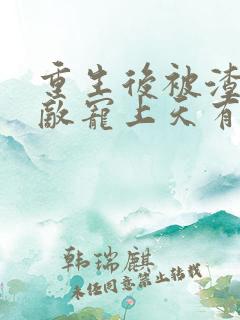 重生後被渣
敵寵上天有
韩瑞麒
未任同意禁止转载